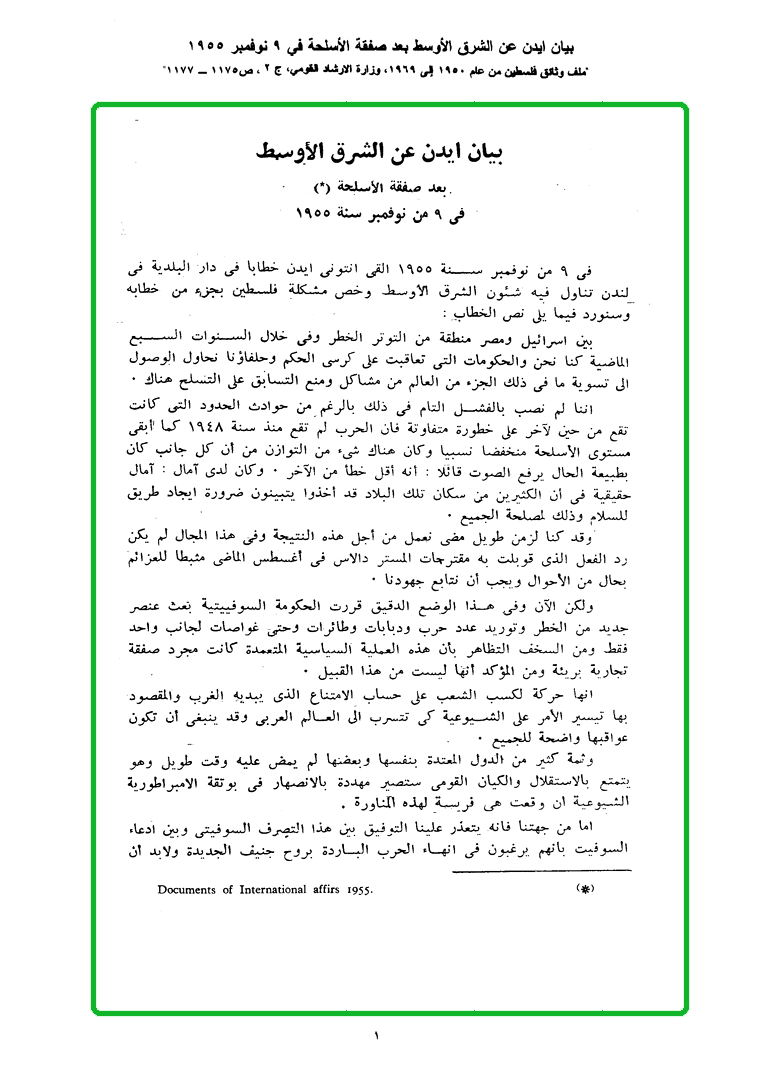 بيان ايدن عن الشرق الأوسط بعد صفقة الأسلحة في ٩ نوفمبر ١٩٥٥
"ملف وثائق فلسطين من عام ١٩٥٠ إلى ١٩٦٩، وزارة الارشاد القومي، ج ٢ ، ص١١٧٥ – ١١٧٧"
بيان ايدن عن الشرق الأوسط
بعد صفقة الأسلحة (*)
فى ٩ من نوفمبر سنة ١٩٥٥
فى ٩ من نوفمبر ســـنة ١٩٥٥ القى انتونى ايدن خطابا فى دار البلدية فى
لندن تناول فيه شئون الشرق الأوسط وخص مشكلة فلسطين بجزء من خطابه
وسنورد فيما يلى نص الخطاب :
بين اسرائيل ومصر منطقة من التوتر الخطر وفى خلال الســنوات الســـبع
الماضية كنا نحن والحكومات التى تعاقبت على كرسى الحكم وحلفاؤنا نحاول الوصول
الى تسوية ما فى ذلك الجزء من العالم من مشاكل ومنع التسابق على التسلح هناك ٠
اننا لم نصب بالفشــل التام فى ذلك بالرغم من حوادث الحدود التى كانت
تقع من حين لآخر على خطورة متفاوتة فان الحرب لم تقع منذ سنة ١٩٤٨ كما أبقى
مستوى الأسلحة منخفضا نسبيا وكان هناك شىء من التوازن من أن كل جانب كان
بطبيعة الحال يرفع الصوت قائلا : أنه أقل خطأ من الآخر ٠ وكان لدى آمال : آمال
حقيقية فى أن الكثيرين من سكان تلك البلاد قد أخذوا يتبينون ضرورة ايجاد طريق
للسلام وذلك لمصلحة الجميع ٠
وقد كنا لزمن طويل مضى نعمل من أجل هذه النتيجة وفى هذا المجال لم يكن
رد الفعل الذى قوبلت به مقترحات المستر دالاس فى أغسطس الماضى مثبطا للعزائم
بحال من الأحوال ويجب أن نتابع جهودنا ٠
ولكن الآن وفى هــذا الوضع الدقيق قررت الحكومة السوفييتية بعث عنصر
جديد من الخطر وتوريد عدد حرب ودبابات وطائرات وحتى غواصات لجانب واحد
فقط ومن السخف التظاهر بأن هذه العملية السياسية المتعمدة كانت مجرد صفقة
تجارية بريئة ومن المؤكد أنها ليست من هذا القبيل ٠
انها حركة لكسب الشعب على حساب الامتناع الذى يبديه الغرب والمقصود
بها تيسير الأمر على الشـيوعية كى تتسرب الى العـالم العربى وقد ينبغى أن تكون
عواقبها واضحة للجميع ٠
وثمة كثير من الدول المعتدة بنفسها وبعضها لم يمض عليه وقت طويل وهو
يتمتع بالاستقلال والكيان القومى ستصير مهددة بالانصهار فى بوتقة الامبراطورية
الشيوعية ان وقعت هى فريسة لهذه المناورة ٠
اما من جهتنا فانه يتعذر علينا التوفيق بين هذا التصرف السوفيتى وبين ادعاء
السوفيت بانهم يرغبون فى انهـاء الحرب البـاردة بروح جنيف الجديدة ولابد أن
(*) Documents of International affirs 1955.
١